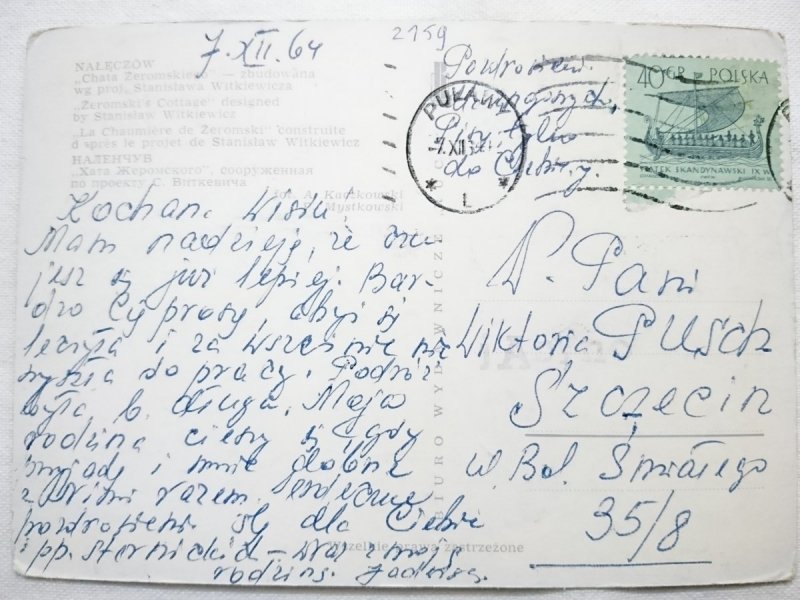 7.XII.64
2159
NAŁĘCZÓW
„Chata Żeromskiego” — zbudowana
wg proj. Stanisława Witkiewicza
"Żeromski's Cottage" designed
by Stanisław Witkiewicz
„La Chaumière de Żeromski" construite
d'après le projet de Stanisław Witkiewicz
НАЛЕНЧУВ
„Хата Жеромского", сооруженная
по проекту С. Виткевича
fot. A. Kaczkowski
Mystkowski
Kochan. Wisiu!
Mam nadzieję, że czu
jesz się już lepiej. Bar-
dzo Cię proszę, abyś się
leczyła i za wcześnie nie
wyszła do pracy. Podróż
była b. długa. Moja
rodzina cieszy się, gdy
przyjadę i mnie dobrze
z nimi razem. Serdeczne
pozdrowienia ślę dla Ciebie
i pp. - wraz z moją
rodziną. Jadwiga.
Wszelkie prawa zastrzeżone
BIURO WYDAWNICZE RUCH
Pozdrowienia
Piszę tylko
do Ciebie
PUŁAWY
-7.XII
1
40 GR POLSKA
STATEK SKANDYNAWSKI IX W.
W. Pani
Wiktoria Pusch
Szczecin
w. Bol. Śmiałego
35/8